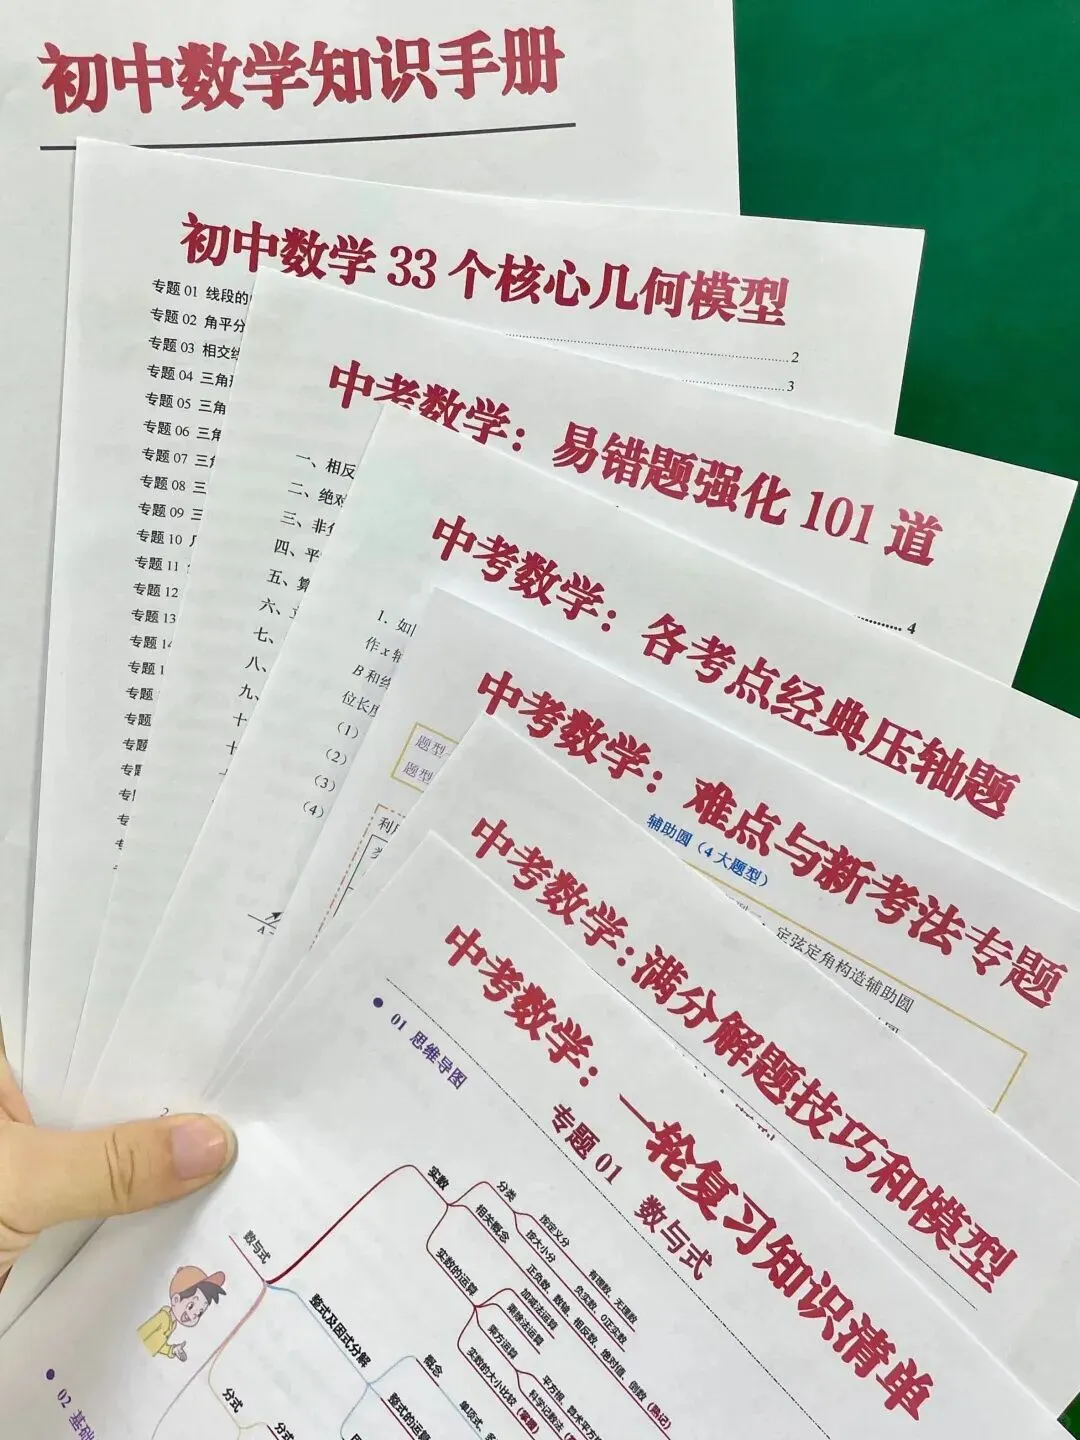 初中数学知识手册
初中数学 33 个核心几何模型
专题 01 线段的
专题 02 角平分
2
专题 03 相交线
3
专题 04 三角形
专题 05 三角
专题 06 三角
专题 07 三角
专题 08 三
专题 09 三
专题 10
专题 11
专题 12
专题 13
专题 14
专题 1
专题
专题
专题
专题
中考数学：易错题强化 101 道
一、相反
二、绝对
三、非负
四、平
五、算
六、
七、
八、
九、
十
十
中考数学：各考点经典压轴题
4
1. 如
作 x 轴
B 和线
位长度
（1）
（2）
（3）
（4）
中考数学：难点与新考法专题
题型一
题型
利用
A
辅助圆（4 大题型）
定弦定角构造辅助圆
中考数学:满分解题技巧和模型
中考数学：一轮复习知识清单
2
专题 01 数与式
01 思维导图
数与式
实数
分类
按定义分
有理数、无理数
按大小分
负实数、0正实数
相关概念
正负数、数轴、相反数、绝对值、倒数（熟记）
实数的运算
加减法运算
乘除法运算
乘方运算
平方根、算术平方
科学记数法
实数的大小比较（掌握）
整式及因式分解
概念
单项式、多
整式的运算
分式
分式
02 基础